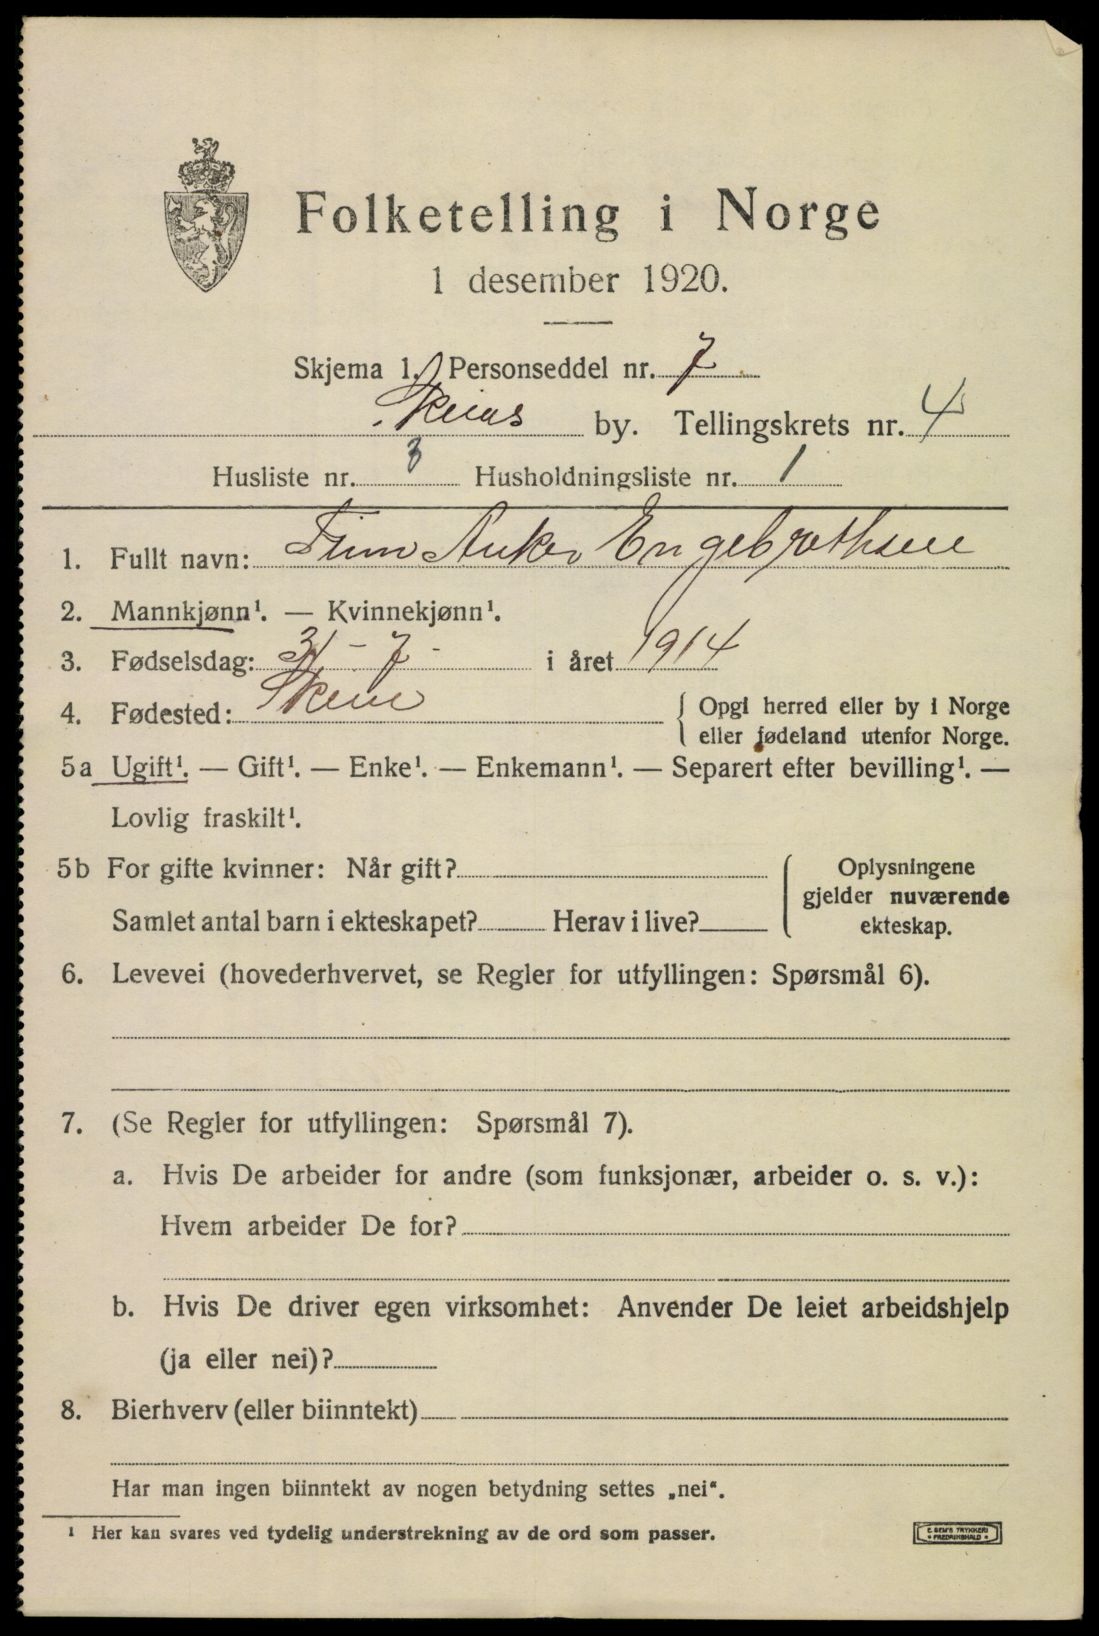 Folketelling i Norge
1 desember 1920.
Skjema 1. Personseddel nr. 7
Skiens by. Tellingskrets nr. 4
Husliste nr. 3 Husholdningsliste nr. 1
1. Fullt navn: Finn Anker Engebrethsen
2. Mannkjønn¹. — Kvinnekjønn¹.
3. Fødselsdag: 31 - 7 - i året 1914
4. Fødested: Skien { Opgi herred eller by i Norge
eller fødeland utenfor Norge.
5a Ugift¹. — Gift¹. — Enke¹. — Enkemann¹. — Separert efter bevilling¹. —
Lovlig fraskilt¹.
5b For gifte kvinner: Når gift? { Oplysningene
gjelder nuværende
Samlet antal barn i ekteskapet? Herav i live? ekteskap.
6. Levevei (hovederhvervet, se Regler for utfyllingen: Spørsmål 6).
7. (Se Regler for utfyllingen: Spørsmål 7).
a. Hvis De arbeider for andre (som funksjonær, arbeider o. s. v.):
Hvem arbeider De for?
b. Hvis De driver egen virksomhet: Anvender De leiet arbeidshjelp
(ja eller nei)?
8. Bierhverv (eller biinntekt)
Har man ingen biinntekt av nogen betydning settes „nei“.
¹ Her kan svares ved tydelig understrekning av de ord som passer.
E. SEM'S TRYKKERI
FREDRIKSHALD